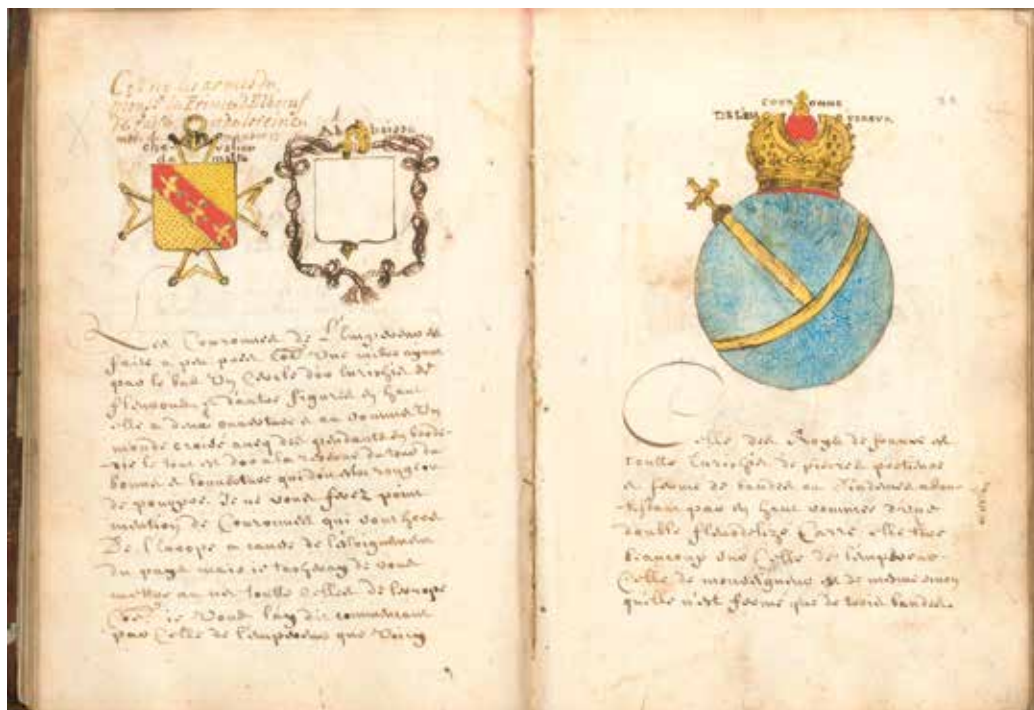 monsr le Prince d'Elboeuf
che valier
de malte
Les Couronnes de l'Empereur est
faite a peu pres Coe Une mitre ayant
par le bas Un Cercle dor Enrichie de
fleurons & d'autres figures en haut
elle a deux ouvertures et au sommet Un
monde croisé avecq des pendants en bande
rie le tout est dor a la reserve du
bonnet et qui doit rouge ou
de pourpre. Je ne vous ferez point
mention de Couronnes qui sont hors
De l'Europe a cause de l'eloignement
du pays mais ie tascheray de vous
mettre au net toutte Celles de leurope
Coe ie Vous lay dit commencant
par Celle de lempereur que Voicy
COUR ONNE
DE LEM PEREUR
Celle des Roys de france est
toutte Enrichie de pierres pretieuse
et ferme de bandes ou Diademes abou
tissant par en haut sommee d'une
double fleurdelize Carré elle tire
beaucoup sur Celle de lempereur
Celle de monseigneur est de mesme sinon
quelle n'est ferme que de trois bandes.